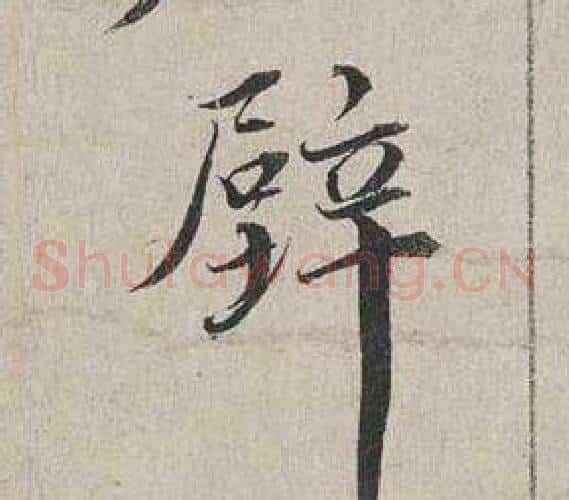 劈
Shufawang.CN